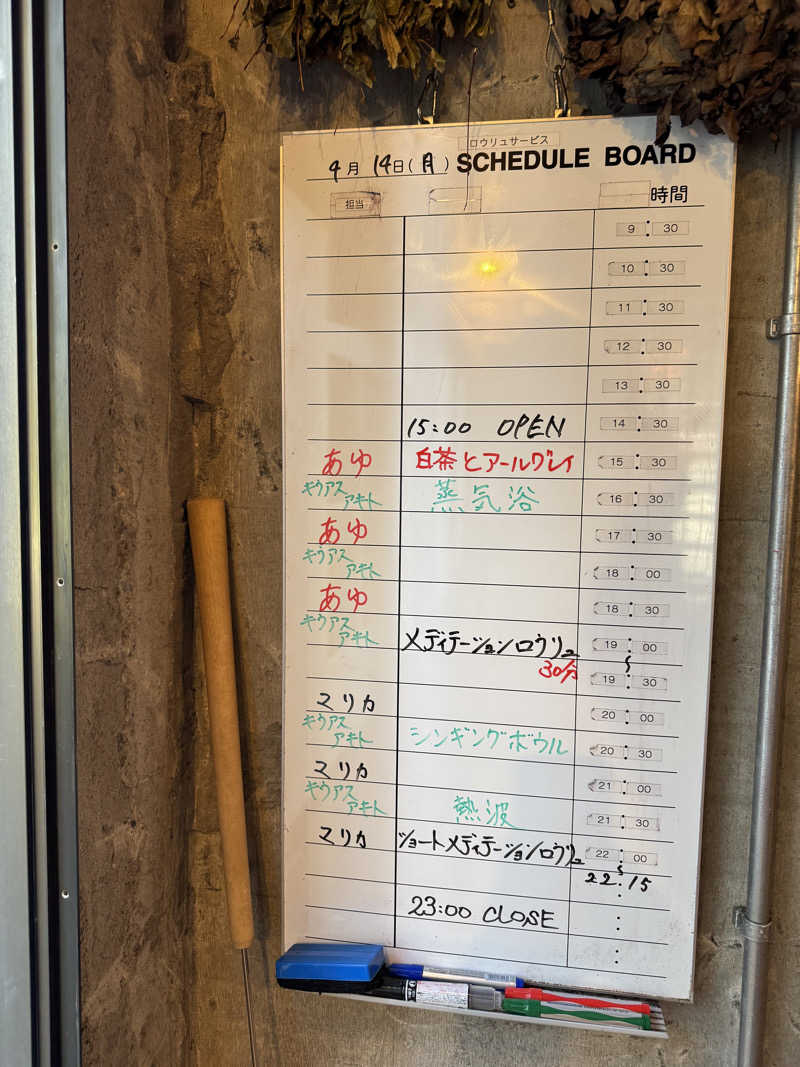 ロウリュサービス
4月 14日(月) SCHEDULE BOARD
担当 時間
9:30
10:30
11:30
12:30
13:30
15:00 OPEN 14:30
あゆ 白茶とアールグレイ 15:30
キウアス アキト 蒸気浴 16:30
あゆ 17:30
キウアス アキト 18:00
あゆ 18:30
キウアス アキト メディテーションロウリュ 19:00
30分 〜 19:30
マリカ 20:00
キウアス アキト シンギングボウル 20:30
マリカ 21:00
キウアス アキト 熱波 21:30
マリカ ショートメディテーションロウリュ 22:00
〜 22:15
23:00 CLOSE :
: